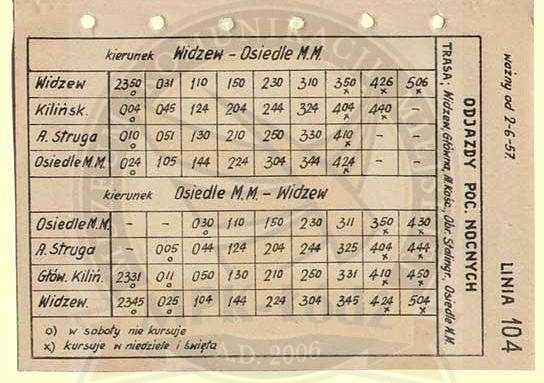 kierunek Widzew - Osiedle M.M.
Widzew 23⁵⁰ 0³¹ 1¹⁰ 1⁵⁰ 2³⁰ 3¹⁰ 3⁵⁰ 4²⁶ 5⁰⁶
o x x x
Kilińsk. 0⁰⁴ 0⁴⁵ 1²⁴ 2⁰⁴ 2⁴⁴ 3²⁴ 4⁰⁴ 4⁴⁰ -
o x x
A. Struga 0¹⁰ 0⁵¹ 1³⁰ 2¹⁰ 2⁵⁰ 3³⁰ 4¹⁰ - -
o x
Osiedle M.M. 0²⁴ 1⁰⁵ 1⁴⁴ 2²⁴ 3⁰⁴ 3⁴⁴ 4²⁴ - -
o x
kierunek Osiedle M.M. - Widzew
Osiedle M.M. - - 0³⁰ 1¹⁰ 1⁵⁰ 2³⁰ 3¹¹ 3⁵⁰ 4³⁰
o x x
A. Struga - 0⁰⁵ 0⁴⁴ 1²⁴ 2⁰⁴ 2⁴⁴ 3²⁵ 4⁰⁴ 4⁴⁴
o x x
Głów. Kiliń. 23³¹ 0¹¹ 0⁵⁰ 1³⁰ 2¹⁰ 2⁵⁰ 3³¹ 4¹⁰ 4⁵⁰
o o x x
Widzew. 23⁴⁵ 0²⁵ 1⁰⁴ 1⁴⁴ 2²⁴ 3⁰⁴ 3⁴⁵ 4²⁴ 5⁰⁴
o o x x
o) w soboty nie kursuje
x) kursuje w niedziele i święta
A.D. 2006
ważny od 2-6-57.
LINIA 104
ODJAZDY POC. NOCNYCH
TRASA: Widzew, Główna, Al. Kość., Obr. Stalingr., Osiedle M.M.